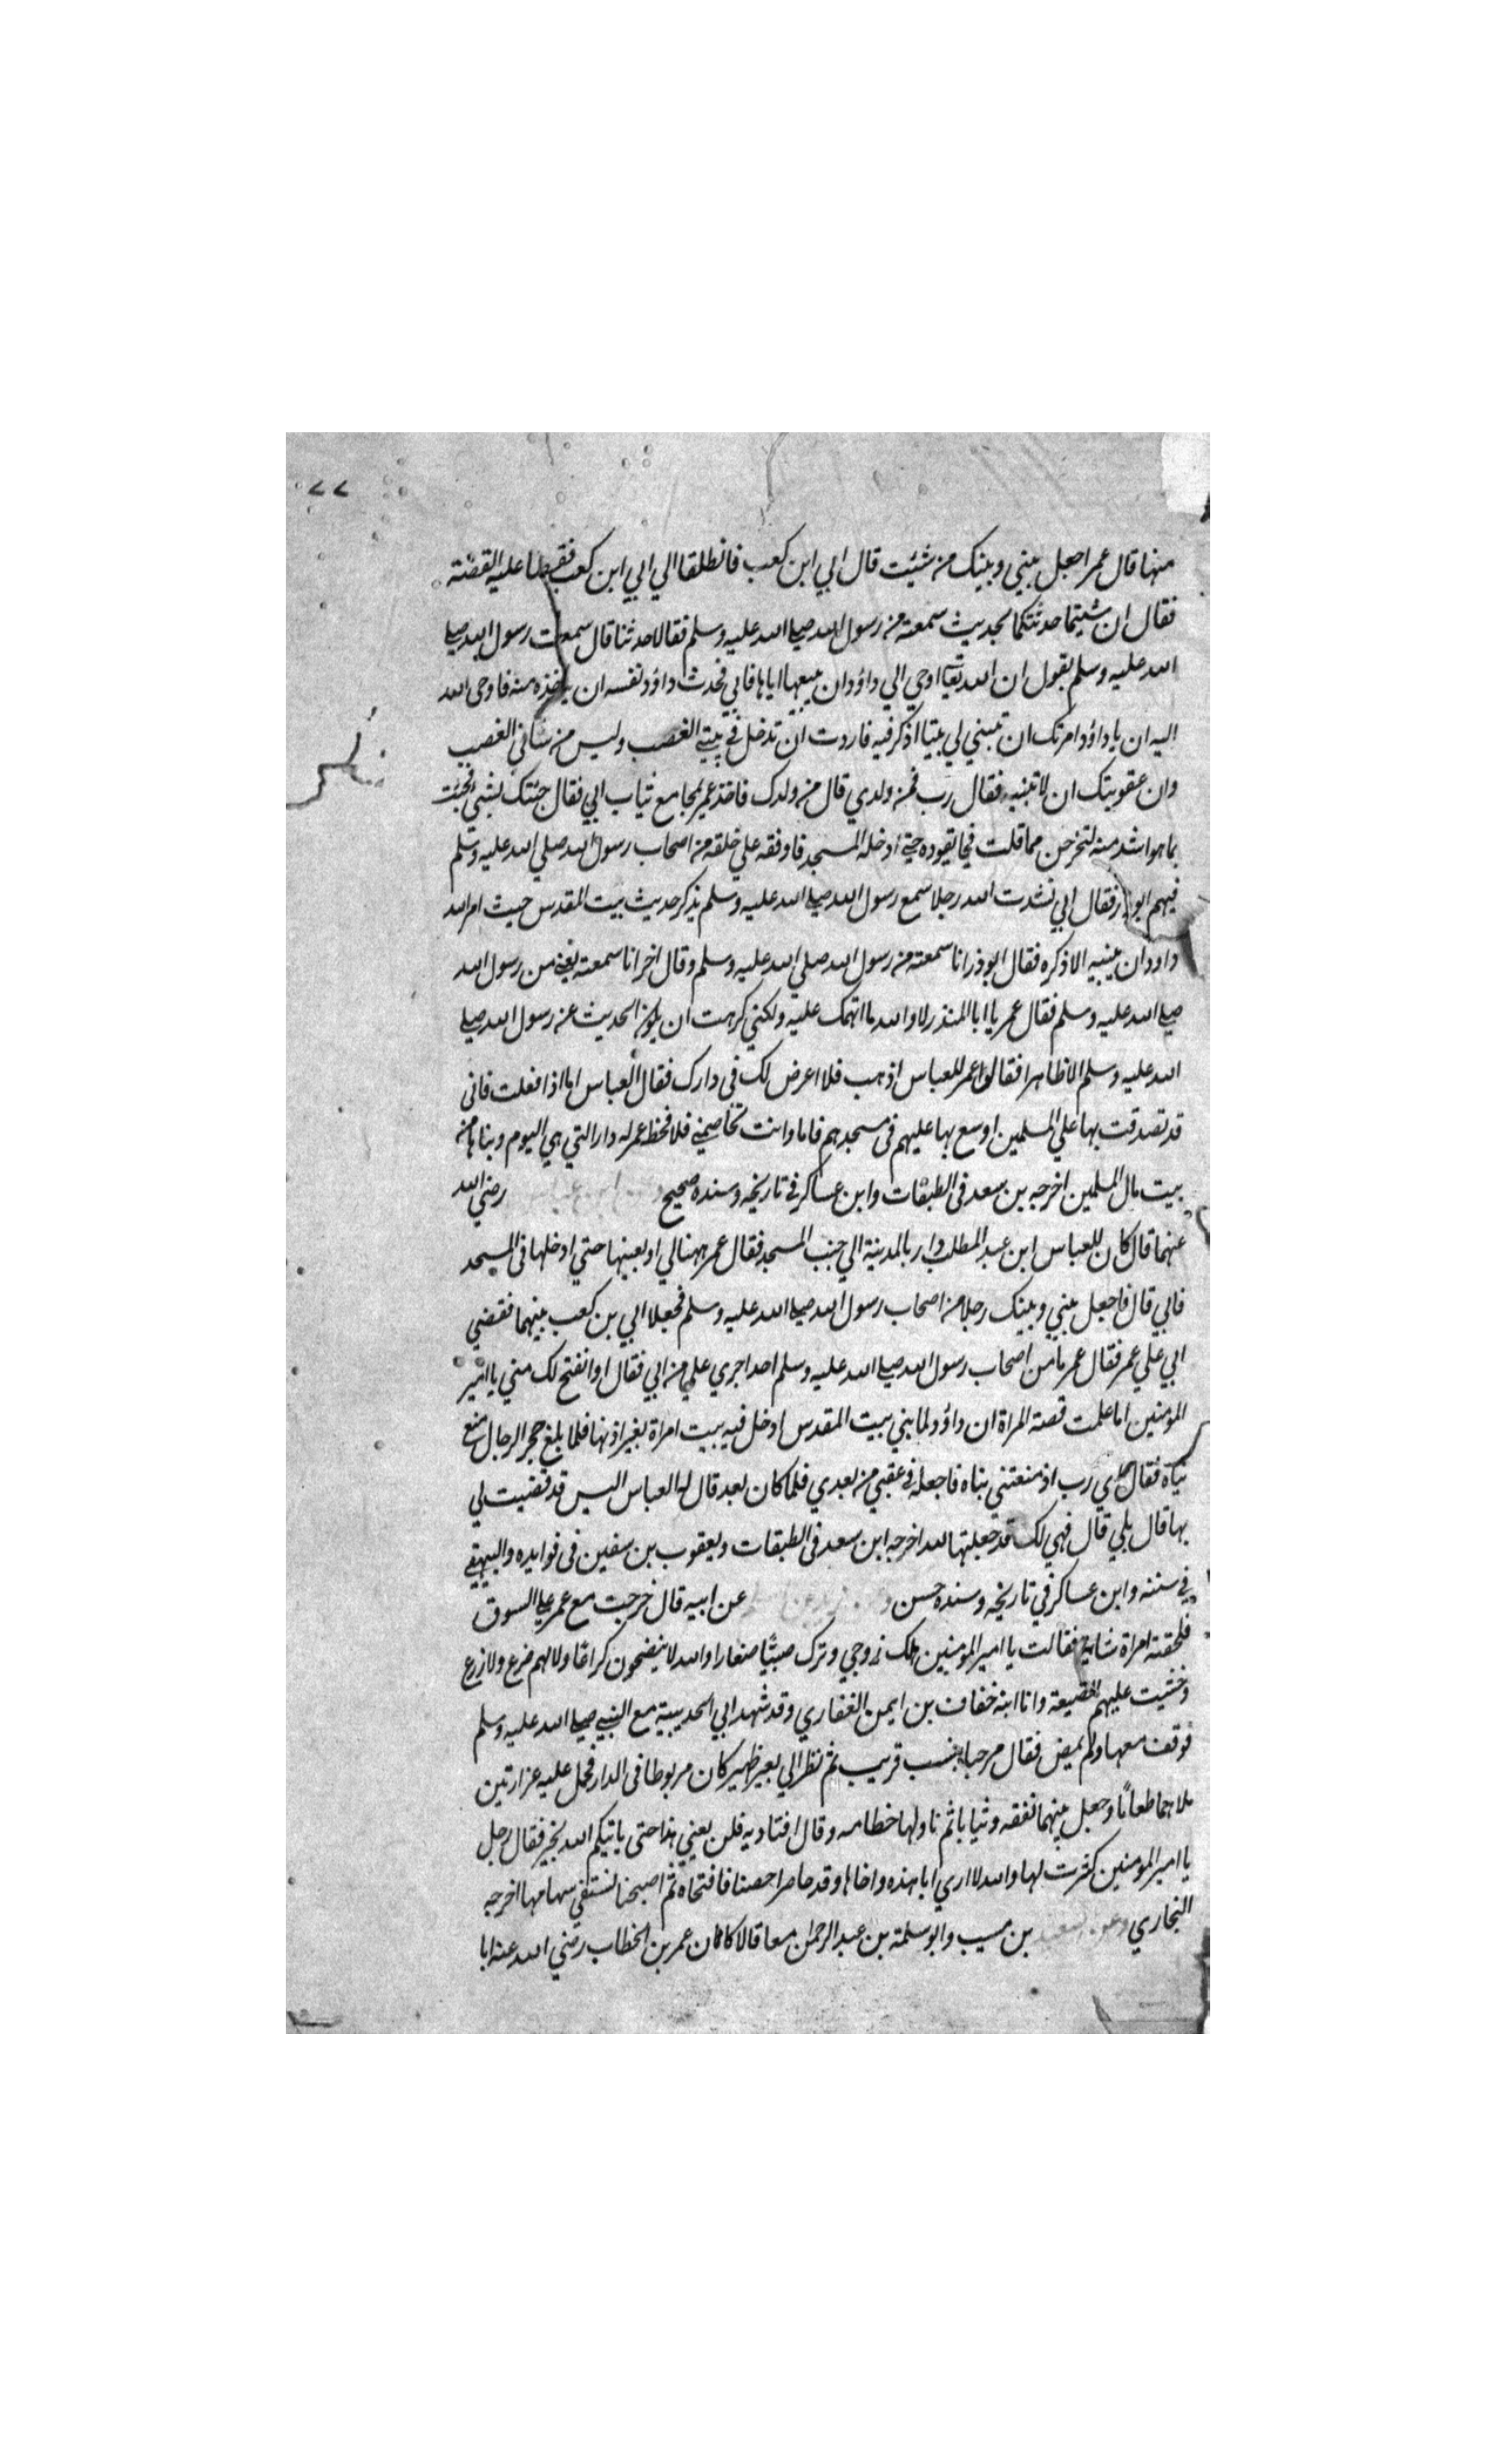 ٧٧
منها قال عمر اجعل بيني وبينك من شئت قال ابي ابن كعب فانطلقا الي ابي ابن كعب فقصا عليه القصة
فقال ان شيتما حدثتكما بحديث سمعته من رسول الله صلي الله عليه وسلم فقالا حدثنا قال سمعت رسول الله صلي
الله عليه وسلم يقول ان الله تعا اوحي الي داؤد ان يبيعها اياها فابي فحدث داؤد نفسه ان ياخذه منه فاوحى الله
اليه ان يا داؤد امرتك ان تبني لي بيتا اذكر فيه فاردت ان تدخل في بيتي الغصب وليس من شاني الغصب
وان عقوبتك ان لا تبنيه فقال رب فمن ولدي قال من ولدك فاخذ عمر بمجامع ثياب ابي فقال جئتك بشيء فجئت
بما هو اشد منه لتخرجن مما قلت فجا يقوده حتي ادخله المسجد فاوقفه علي حلقه من اصحاب رسول الله صلي الله عليه وسلم
فيهم ابو ذر فقال ابي نشدت الله رجلا سمع رسول الله صلي الله عليه وسلم يذكر حديث بيت المقدس حيث امر الله
داود ان يبنيه الا ذكره فقال ابو ذر انا سمعته من رسول الله صلي الله عليه وسلم وقال اخر انا سمعته يعني من رسول الله
صلي الله عليه وسلم فقال عمر يا ابا المنذر لا والله ما اتهمك عليه ولكني كرهت ان يكون الحديث عن رسول الله صلي
الله عليه وسلم الا ظاهرا فقال عمر للعباس اذهب فلا اعرض لك فى دارك فقال العباس اما اذا فعلت فانى
قد تصدقت بها علي المسلمين اوسع بها عليهم فى مسجدهم فاما وانت تخاصمني فلا فخط عمر له دار التي هي اليوم وبناها من
بيت مال المسلمين اخرجه بن سعد فى الطبقات وابن عساكر في تاريخه وسنده صحيح ابن عباس رضي الله
عنهما قال كان للعباس ابن عبد المطلب دار بالمدينة الي جنب المسجد فقال عمر هبها لي او بعنيها حتي ادخلها فى المسجد
فابي قال فاجعل بيني وبينك رجلا من اصحاب رسول الله صلي الله عليه وسلم فجعلا ابي بن كعب بينهما فقضي
ابي علي عمر فقال عمر ما من اصحاب رسول الله صلي الله عليه وسلم احد اجري علي من ابي فقال او انفتح لك مني يا امير
المؤمنين اما علمت قصة المراة ان داؤد لما بني بيت المقدس ادخل فيه بيت امراة بغير اذنها فلما بلغ حجر الرجال منع
بناه فقال اي رب اذ منعتني بناه فاجعله في عقبي من بعدي فلما كان بعد قال له العباس اليس قد قضيت لي
بها قال بلي قال فهي لك قد جعلتها لله اخرجه ابن سعد فى الطبقات ويعقوب بن سفين فى فوايده والبيهقي
في سننه وابن عساكر في تاريخه وسنده حسن عن ابيه قال خرجت مع عمر علي السوق
فلحقته امراة شابة فقالت يا امير المؤمنين هلك زوجي وترك صبيا صغارا والله لا ينضجون كراعا ولا لهم ضرع ولا زرع
وخشيت عليهم الضيعة وانا ابنه خفاف بن ايمن الغفاري وقد شهد ابي الحديبية مع النبي صلي الله عليه وسلم
فوقف معها ولم يمض فقال مرحبا بنسب قريب ثم نظر الي بعير ظهير كان مربوطا فى الدار فحمل عليه غرارتين
ملاهما طعاما وجعل بينهما نفقه وثيابا ثم ناولها خطامه وقال اقتاديه فلن يعني هذا حتى ياتيكم الله بخير فقال رجل
يا امير المومنين كثرت لها والله لا اري ابا هذه واخاها وقد حاصرا حصنا فافتحاه ثم اصبحنا نستقي سهامها اخرجه
البخاري وعن سعيد بن مسيب وابو سلمة بن عبد الرحمان معا قالا كان عمر بن الخطاب رضي الله عنه ابا